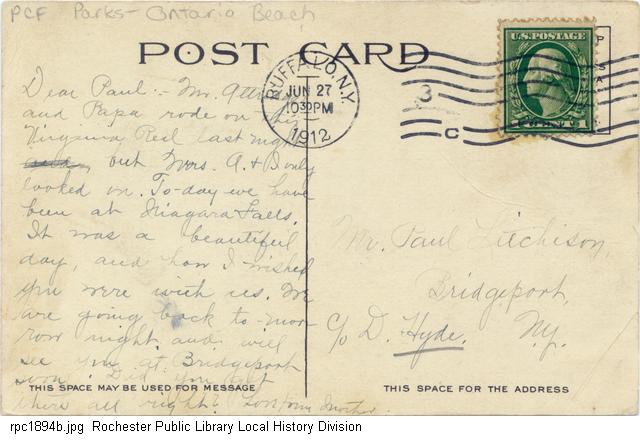 PCF Parks - Ontario Beach
POST CARD
BUFFALO, N.Y.
JUN 27
1030PM
1912
3
C
U.S. POSTAGE
Dear Paul:- Mr.
and Papa rode on the
Virginia Reel last night
but Mrs. A. & I only
looked on. To-day we have
been at Niagara Falls.
It was a beautiful
day, and how I wished
you were with us. We
are going back to-mor-
row night and will
see you at Bridgeport
soon. Did you get
there all right? Mother
Mr. Paul
Bridgeport,
c/o D. Hyde. N.Y.
THIS SPACE MAY BE USED FOR MESSAGE
THIS SPACE FOR THE ADDRESS
rpc1894b.jpg Rochester Public Library Local History Division